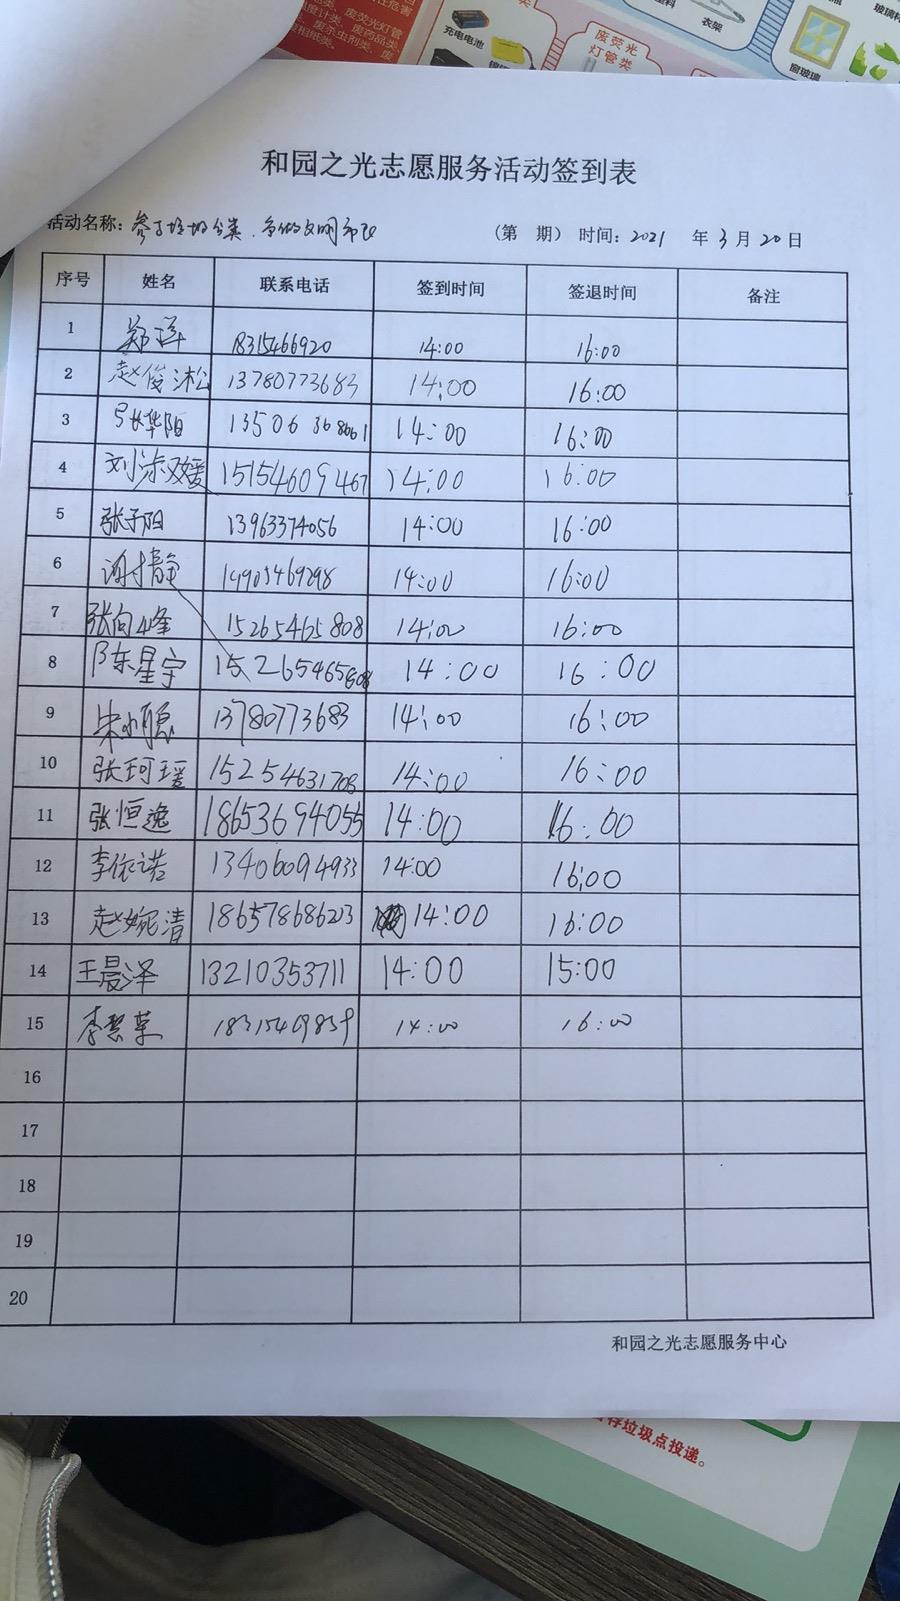 充电电池
衣架
废荧光
灯管类
窗玻璃
和园之光志愿服务活动签到表
活动名称：参与垃圾分类、争做文明市民
（第 期） 时间：2021 年 3 月 20 日
序号 姓名 联系电话 签到时间 签退时间 备注
1 郑洋 18315466920 14:00 16:00
2 赵俊淞 13780773683 14:00 16:00
3 张华阳 14:00 16:00
4 15154609467 14:00 16:00
5 张子阳 13963374056 14:00 16:00
6 14:00 16:00
7 张向峰 15265465808 14:00 16:00
8 陈星宇 15265465808 14:00 16:00
9 13780773683 14:00 16:00
10 张珂瑶 15254631708 14:00 16:00
11 张恒逸 18653694055 14:00 16:00
12 李依诺 13406094933 14:00 16:00
13 赵婉清 18657868623 14:00 16:00
14 王晨泽 13210353711 14:00 15:00
15 14:00 16:00
16
17
18
19
20
和园之光志愿服务中心
垃圾点投递。